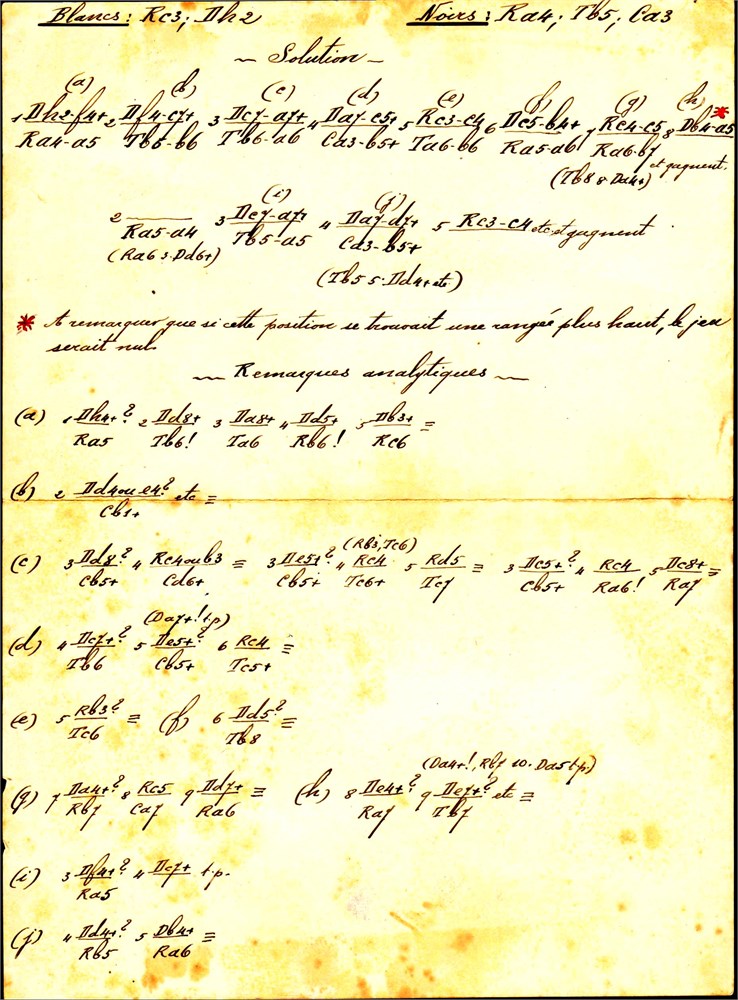 Blancs: Rc3; Dh2 Noirs: Ra4; Tb5; Ca3
~ Solution ~
(a) (b) (c) (d) (e) (f) (g) (h) *
1 Dh2-f4+ 2 Df4-c7+ 3 Dc7-a7+ 4 Da7-e5+ 5 Rc3-c4 6 De5-b4+ 7 Rc4-c5 8 Db4-a5
Ra4-a5 Tb5-b6 Tb6-a6 Ca3-b5+ Ta6-b6 Ra5-a6 Ra6-b7 et gagnent.
(Tb8 8 Da4+)
(i) (j)
2 ——— 3 Dc7-a7+ 4 Da7-d7+ 5 Rc3-c4 etc et gagnent
Ra5-a4 Tb5-a5 Ca3-b5+
(Ra6 3. Dd6+)
(Tb5 5. Dd4+ etc)
* A remarquer que si cette position se trouvait une rangée plus haut, le jeu
serait nul.
~ Remarques analytiques ~
(a) 1 Dh4+? 2 Dd8+ 3 Da8+ 4 Dd5+ 5 Db3+ =
Ra5 Tb6! Ta6 Rb6! Rc6
(b) 2 Dd4 ou e4? etc =
Cb1+
(Rb3, Tc6)
(c) 3 Dd8? 4 Rc4 ou b3 = 3 De5+? 4 Rc4 5 Rd5 = 3 Dc5+? 4 Rc4 5 Dc8+ =
Cb5+ Cd6+ Cb5+ Tc6+ Tc7 Cb5+ Ra6! Ra7
(Da7+! t.p)
(d) 4 Dc7+? 5 De5+? 6 Rc4 =
Tb6 Cb5+ Tc5+
(e) 5 Rb3? = (f) 6 Dd5? =
Tc6 Tb8
(Da4+!, Rb7 10. Da5 t.p)
(g) 7 Da4+? 8 Rc5 9 Dd7+ = (h) 8 De4+? 9 De7+? etc =
Rb7 Ca7 Ra6 Ra7 Tb7
(i) 3 Df4+? 4 Dc7+ t.p.
Ra5
(j) 4 Dd4+? 5 Db4+ =
Rb5 Ra6